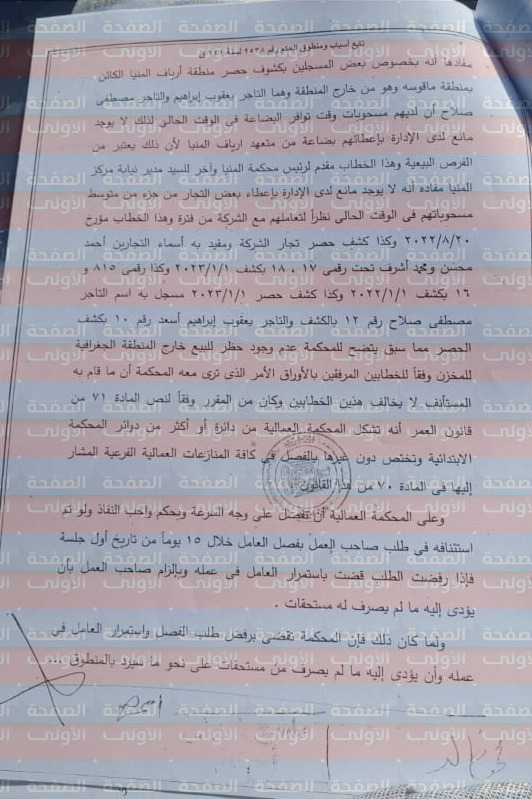 تابع أسباب ومنطوق الحكم رقم ٢٥٣٨ لسنة
مفادها أنه بخصوص بعض المسجلين بكشوف حصر منطقة أرياف المنيا الكائن
بمنطقة ماقوسه وهو من خارج المنطقة وهما التاجر يعقوب إبراهيم والتاجر مصطفى
صلاح أن لديهم مسحوبات وقت توافر البضاعة فى الوقت الحالى لذلك لا يوجد
مانع لدى الإدارة بإعطائهم بضاعة من متعهد ارياف المنيا لأن ذلك يعتبر من
الفرص البيعية وهذا الخطاب مقدم لرئيس محكمة المنيا وآخر للسيد مدير نيابة مركز
المنيا مفاده أنه لا يوجد مانع لدى الإدارة بإعطاء بعض التجار من جزء من متوسط
مسحوباتهم فى الوقت الحالى نظراً لتعاملهم مع الشركة من فترة وهذا الخطاب مؤرخ
٢٠٢٢/٨/٢٠ وكذا كشف حصر تجار الشركة ومقيد به أسماء التجارين أحمد
محسن ومحمد أشرف تحت رقمى ١٧ ، ١٨ بكشف ٢٠٢٣/١/١ وكذا رقمى ٨١٥ و
١٦ بكشف ٢٠٢٢/١/١ وكذا كشف حصر ٢٠٢٣/١/١ مسجل به اسم التاجر
مصطفى صلاح رقم ١٢ بالكشف والتاجر يعقوب إبراهيم أسعد رقم ١٠ بكشف
الحصر مما سبق يتضح للمحكمة عدم وجود حظر للبيع خارج المنطقة الجغرافية
للمخزن وفقاً للخطابين المرفقين بالأوراق الأمر الذى ترى معه المحكمة أن ما قام به
المستأنف لا يخالف هذين الخطابين وكان من المقرر وفقاً لنص المادة ٧١ من
قانون العمر أنه تشكل المحكمة العمالية من دائرة أو أكثر من دوائر المحكمة
الابتدائية وتختص دون غيرها بالفصل فى كافة المنازعات العمالية الفرعية المشار
إليها فى المادة ٧٠ من هذا القانون
وعلى المحكمة العمالية أن تفصل على وجه السرعة وبحكم واجب النفاذ ولو تم
استئنافه فى طلب صاحب العمل بفصل العامل خلال ١٥ يوماً من تاريخ أول جلسة
فإذا رفضت الطلب قضت باستمرار العامل فى عمله وبإلزام صاحب العمل بأن
يؤدى إليه ما لم يصرف له مستحقات .
ولما كان ذلك فإن المحكمة تقضى برفض طلب الفصل واستمرار العامل فى
عمله وأن يؤدى إليه ما لم يصرف من مستحقات على نحو ما سيرد بالمنطوق ...
الصفحة الأولى